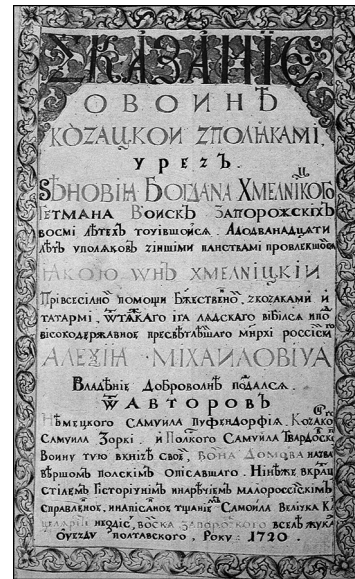 СКАЗАНИЕ
О ВОИНѢ
КОЗАЦКОЙ ЗПОЛЯКАМИ
УРЕЗЪ
ЗѢНОВІЯ БОГДАНА ХМЕЛНИЦКОГО
ГЕТМАНА ВОИСКЪ ЗАПОРОЖСКІХЪ
ВОСМІ ЛѢТЕХЪ ТОЧІВШОЙСЯ. АДОДВАНАДЦЯТИ
ЛѢТЪ УПОЛЯКОВЪ ЗІНШІМИ ПАНСТВАМИ ПРОВЛЕКШОЙСЯ
ЯКОЮ ѾНЪ ХМЕЛНІЦКІЙ
ПРІВСЕСІЛНОЙ ПОМОЩИ БЖЕСТВЕНОЙ, ЗКОЗАКАМИ И
ТАТАРМІ, ѾТЯЖКАГО ІГА ЛЯДСКАГО ВІБІЛСЯ ИПО
ВІСОКОДЕРЖАВНОЕ ПРЕСВѢТЛѢЙШАГО МНРХІ РОССІЙСКГО
АЛЕѮІЯ МІХАЙЛОВІЧА
ВЛАДѢНІЕ ДОБРОВОЛНѢ ПОДАЛСЯ.
Ѿ АВТОРОВЪ
НѢМЕЦКОГО САМУИЛА ПУФЕНДОРФІЯ, КОЗАКОГО
САМУИЛА ЗОРКІ. Й ПОЛКОГО САМУИЛА ТВАРДОСКГО
ВОИНУ ТУЮ ВКНІЗѢ СВОЕЙ, ВОЙНА ДОМОВА НАЗВАНОЙ
ВѢРШОМЪ ПОЛСКІМЪ ОПІСАВШАГО. НІНѢЖЕ ВКРАЦѢ
СТІЛЕМЪ ГІСТОРІЧНІМЪ ИНАРѢЧІЕМЪ МАЛОРОССІЙСКІМЪ
СПРАВЛЕНОЕ, ИНАПІСАНОЕ ТЩАНІЕМЪ САМОИЛА ВЕЛІЧКА К
ЦЕЛЯРІЙ НЕГДІСЬ, ВОСКА ЗАПОРОЗКОГО ВСЕЛѢ ЖУКАХЪ
ОУЕЗДУ ПОЛТАВСКОГО, РОКУ 1720